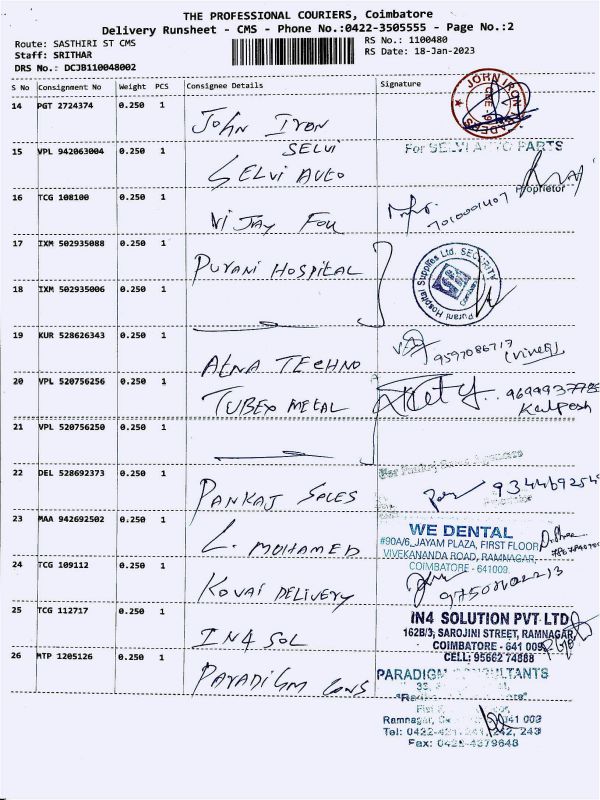 THE PROFESSIONAL COURIERS, Coimbatore
Delivery Runsheet - CMS - Phone No.:0422-3505555 - Page No.:2
Route: SASTHIRI ST CMS
RS No.: 1100480
Staff: SRITHAR
RS Date: 18-Jan-2023
DRS No.: DCJB110048002
S No Consignment No Weight PCS Consignee Details Signature
14 PGT 2724374 0.250 1 John Iron
JOHN IRON
15 VPL 942063004 0.250 1 SELVI
SELVI AUTO
For SELVI AUTO PARTS
Proprietor
16 TCG 108100 0.250 1 Vijay Fou
17 IXM 502935088 0.250 1 PURANI HOSPITAL
Purani Hospital Supplies Ltd. SECURITY
18 IXM 502935006 0.250 1
19 KUR 528626343 0.250 1 AENA TECHNO
9597086717
20 VPL 520756256 0.250 1 TUBEX METAL
Kalpesh
21 VPL 520756250 0.250 1
22 DEL 528692373 0.250 1 PANKAJ SALES
23 MAA 942692502 0.250 1 L. MOHAMED
WE DENTAL
#90A/6, JAYAM PLAZA, FIRST FLOOR
VIVEKANANDA ROAD, RAMNAGAR,
COIMBATORE - 641009.
24 TCG 109112 0.250 1 KOVAI DELIVERY
25 TCG 112717 0.250 1 IN4 SOL
IN4 SOLUTION PVT LTD
162B/3, SAROJINI STREET, RAMNAGAR,
COIMBATORE - 641 009
CELL: 95662 74888
26 MTP 1205126 0.250 1 Paradigm Cons
PARADIGM CONSULTANTS
Ramnagar,
Fax: 0422-4379648